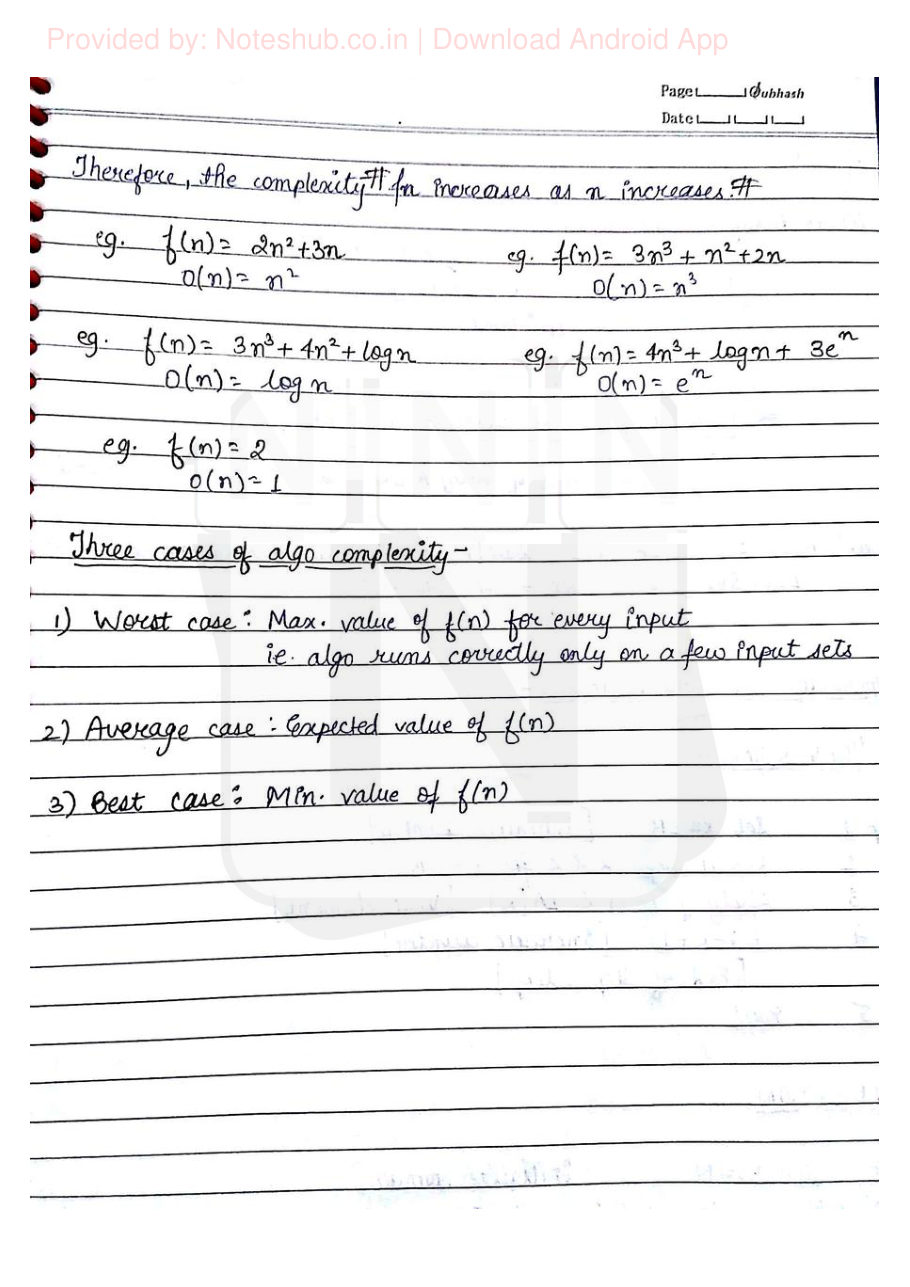 Provided by: Noteshub.co.in | Download Android App
Page Subhash
Date
Therefore, the complexity # fn increases as n increases. #
eg. f(n) = 2n²+3n
O(n) = n²
eg. f(n) = 3n³ + n²+2n
O(n) = n³
eg. f(n) = 3n³ + 4n² + logn
O(n) = log n
eg. f(n) = 4n³ + logn + 3eⁿ
O(n) = eⁿ
eg. f(n) = 2
O(n) = 1
Three cases of algo complexity -
1) Worst case : Max. value of f(n) for every input
ie. algo runs correctly only on a few input sets
2) Average case : Expected value of f(n)
3) Best case : Min. value of f(n)